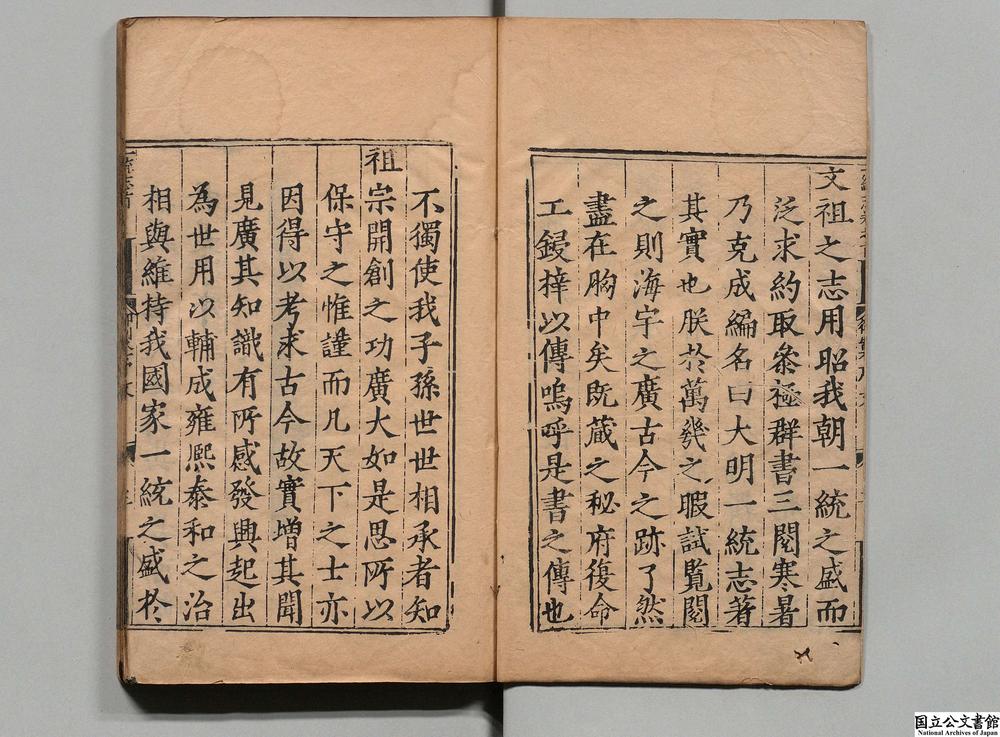 文祖之志用昭我朝一統之盛而
泛求約取叅極群書三閱寒暑
乃克成編名曰大明一統志著
其實也朕於萬幾之暇試覽閱
之則海宇之廣古今之跡了然
盡在胸中矣既藏之秘府復命
工鋟梓以傳嗚呼是書之傳也
不獨使我子孫世世相承者知
祖宗開創之功廣大如是思所以
保守之惟謹而凡天下之士亦
因得以考求古今故實增其聞
見廣其知識有所感發興起出
為世用以輔成雍熙泰和之治
相與維持我國家一統之盛於
国立公文書館
National Archives of Japan